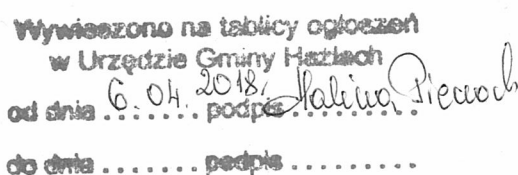 Wywieszono na tablicy ogłoszeń
w Urzędzie Gminy Hażlach
od dnia 6.04.2018r. podpis Halina Pieczoch
do dnia ........ podpis ..........